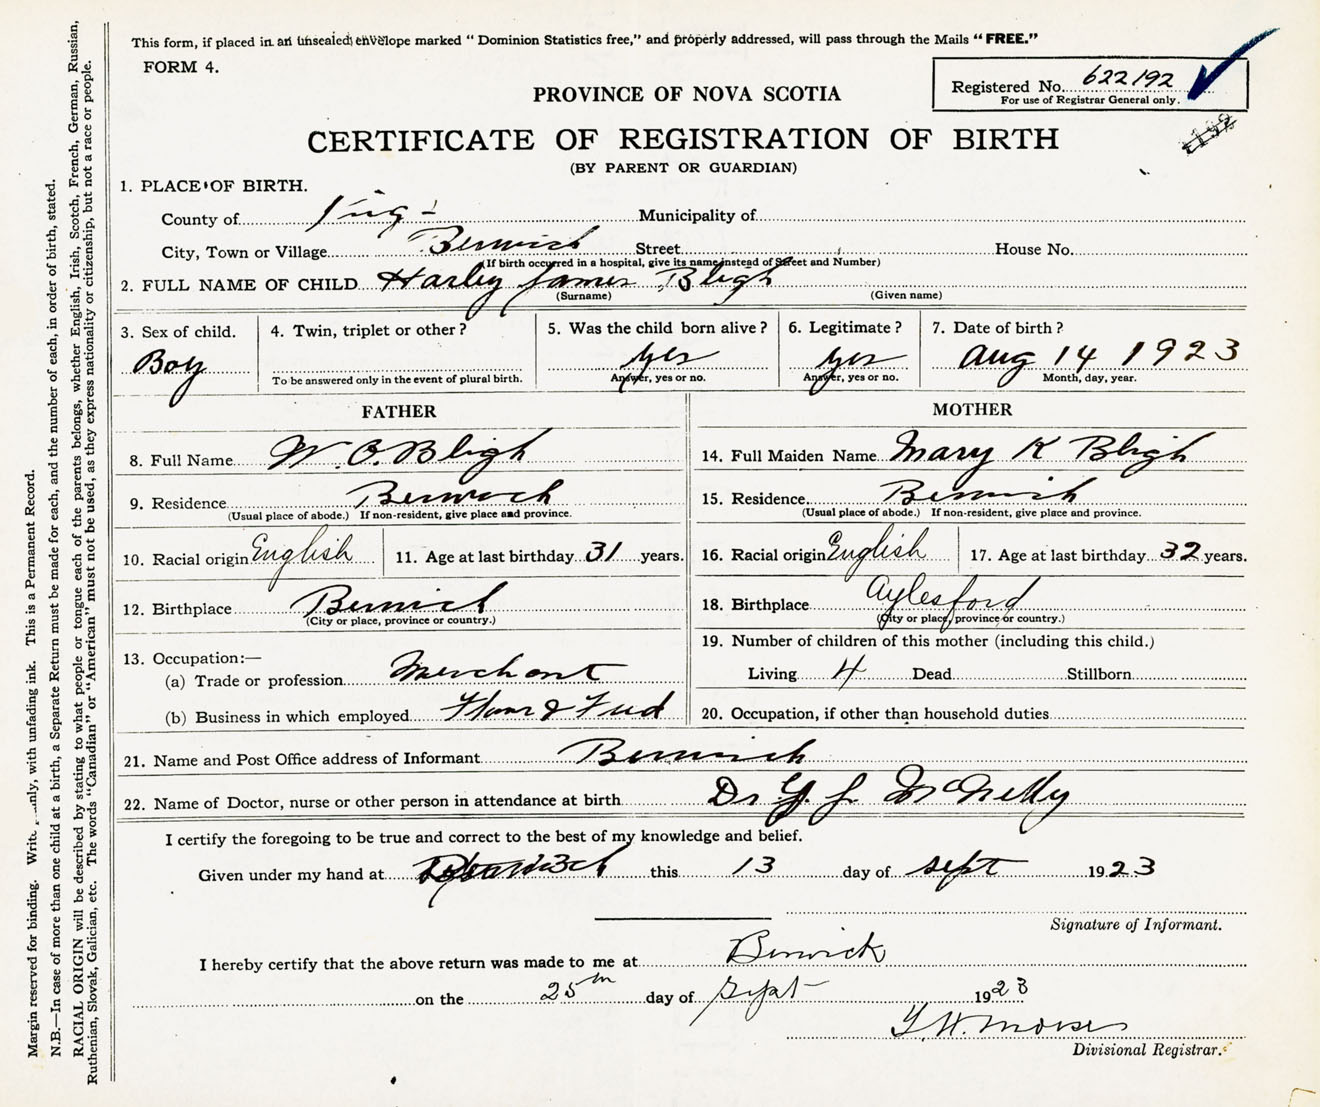 This form, if placed in an unsealed envelope marked “ Dominion Statistics free,” and properly addressed, will pass through the Mails “ FREE.”
FORM 4.
Registered No. 622192
For use of Registrar General only.
PROVINCE OF NOVA SCOTIA
CERTIFICATE OF REGISTRATION OF BIRTH
(BY PARENT OR GUARDIAN)
1. PLACE OF BIRTH.
County of Kings Municipality of
City, Town or Village Berwick Street House No.
(If birth occurred in a hospital, give its name instead of Street and Number)
2. FULL NAME OF CHILD Harley James Bligh
(Surname) (Given name)
3. Sex of child. 4. Twin, triplet or other ? 5. Was the child born alive ? 6. Legitimate ? 7. Date of birth ?
Boy yes yes Aug 14 1923
To be answered only in the event of plural birth. Answer, yes or no. Answer, yes or no. Month, day, year.
FATHER MOTHER
8. Full Name W. O. Bligh 14. Full Maiden Name Mary K Bligh
9. Residence Berwick 15. Residence Berwick
(Usual place of abode.) If non-resident, give place and province. (Usual place of abode.) If non-resident, give place and province.
10. Racial origin English 11. Age at last birthday 31 years. 16. Racial origin English 17. Age at last birthday 32 years.
12. Birthplace Berwick 18. Birthplace Aylesford
(City or place, province or country.) (City or place, province or country.)
13. Occupation:— 19. Number of children of this mother (including this child.)
(a) Trade or profession Merchant Living 4 Dead Stillborn
(b) Business in which employed Flour & Feed 20. Occupation, if other than household duties
21. Name and Post Office address of Informant Berwick
22. Name of Doctor, nurse or other person in attendance at birth Dr McNally
I certify the foregoing to be true and correct to the best of my knowledge and belief.
Given under my hand at Berwick this 13 day of Sept 1923
Signature of Informant.
I hereby certify that the above return was made to me at Berwick
on the 25th day of Sept 1923
Morse
Divisional Registrar.
Margin reserved for binding. Write only, with unfading ink. This is a Permanent Record.
N.B.—In case of more than one child at a birth, a Separate Return must be made for each, and the number of each, in order of birth, stated.
RACIAL ORIGIN will be described by stating to what people or tongue each of the parents belongs, whether English, Irish, Scotch, French, German, Russian,
Ruthenian, Slovak, Galician, etc. The words “Canadian” or “American” must not be used, as they express nationality or citizenship, but not a race or people.